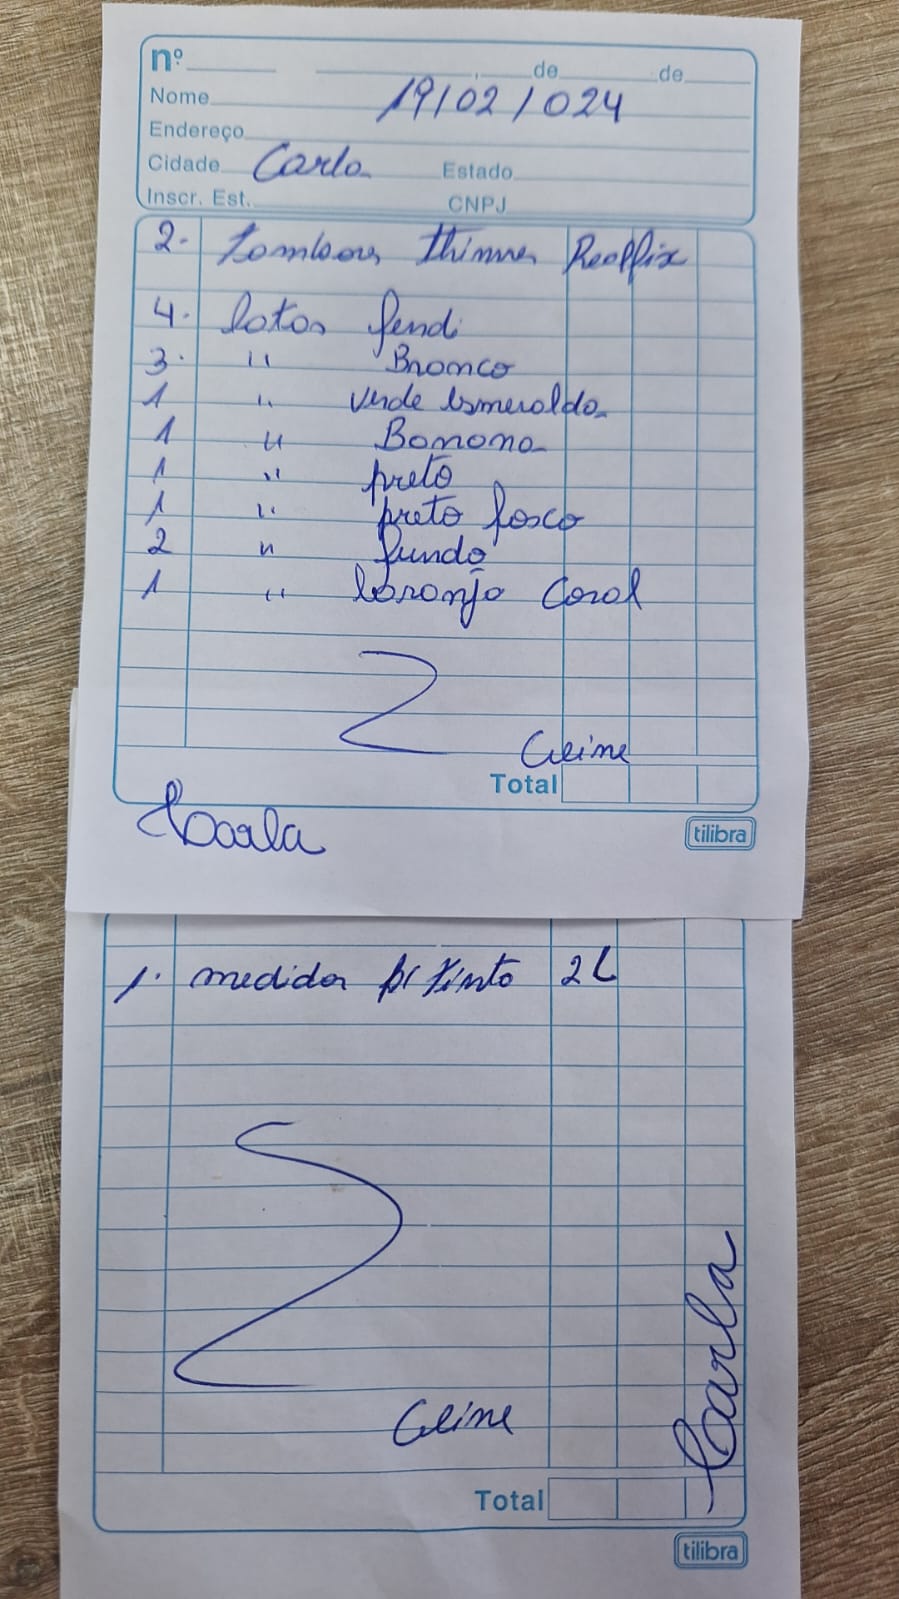 nº de de
Nome 19/02/024
Endereço
Cidade Carla Estado
Inscr. Est. CNPJ
2. Tambores thinner Realfix
4. latas fendi
3. " Branco
1 " verde Esmeralda
1 " Banana
1 " preto
1 " preto fosco
2 " fundo
1 " laranja Coral
Total
Carla
tilibra
1. medidor p/ tinta 2L
Carla
Total
tilibra